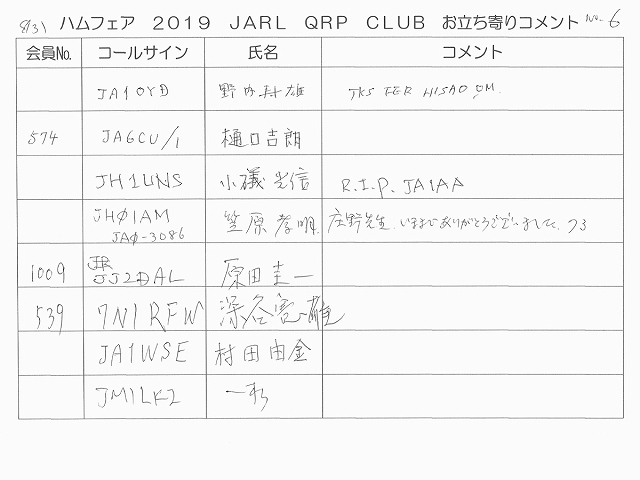 8/31 ハムフェア 2019 JARL QRP CLUB お立ち寄りコメント No. 6
会員No. コールサイン 氏名 コメント
JA1OYD 野内 雄 TKS FER HISAO OM.
574 JA6CU/1 樋口吉朗
JH1UNS 小磯光信 R.I.P. JA1AA
JHØ1AM 笠原孝明 庄野先生、いままでありがとうございました。73
JAØ-3086
1009 JJ2DAL 原田圭一
539 7N1RFW 深谷亮雄
JA1WSE 村田由金
JM1LKI 一彩